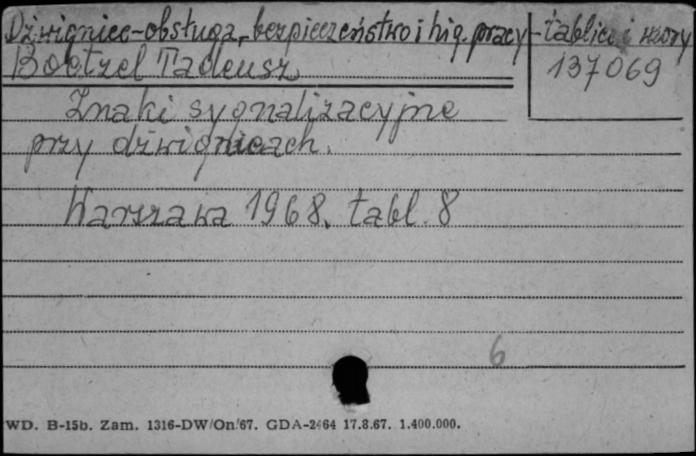 Dźwignice-obsługa, bezpieczeństwo i hig. pracy-tablice i wzory
Boetzel Tadeusz
137069
Znaki sygnalizacyjne
przy dźwignicach.
Warszawa 1968. tabl. 8
6
WD. B-15b. Zam. 1316-DW/On/67. GDA-2464 17.8.67. 1.400.000.